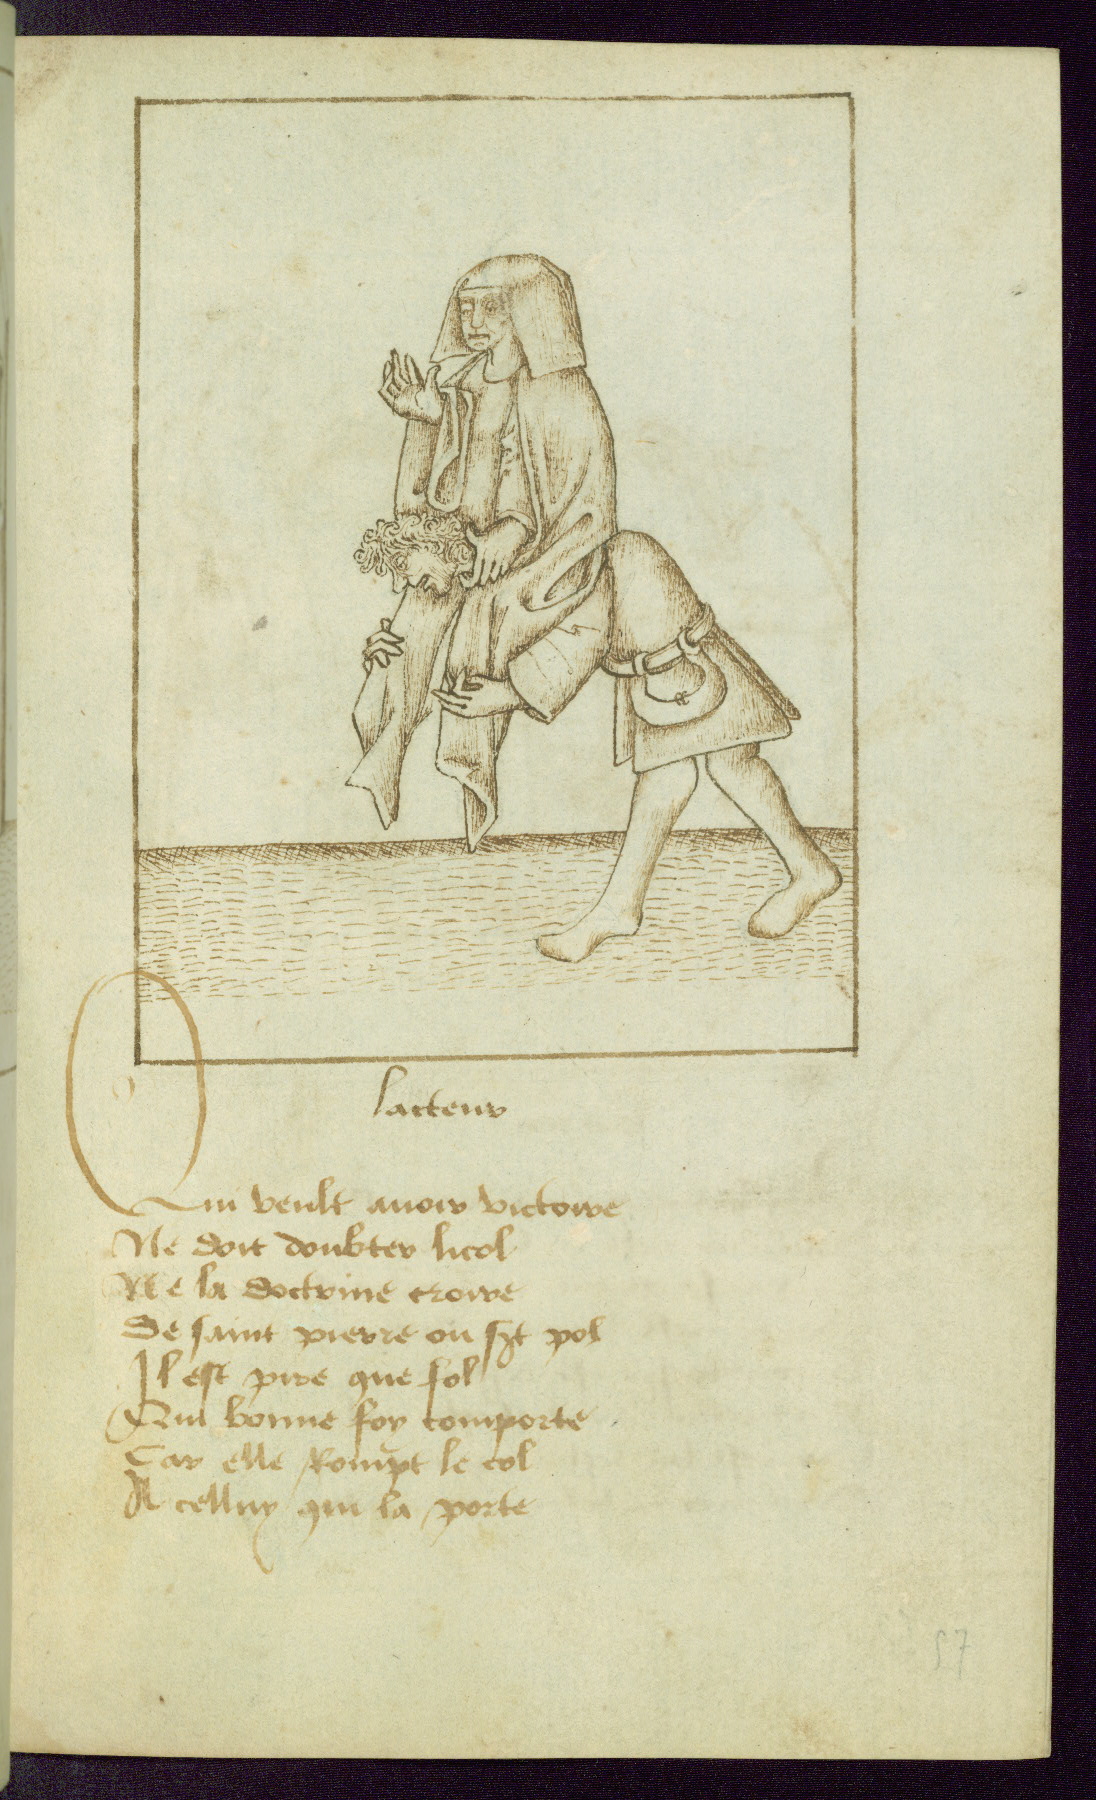 lacteur
Qui veult auoir victoire
Ne doit doubter licol
Ne la doctrine croire
De saint pierre ou sct pol
Il est pire que fol
Qui bonne foy comporte
Car elle Rompt le col
A celluy qui la porte
57